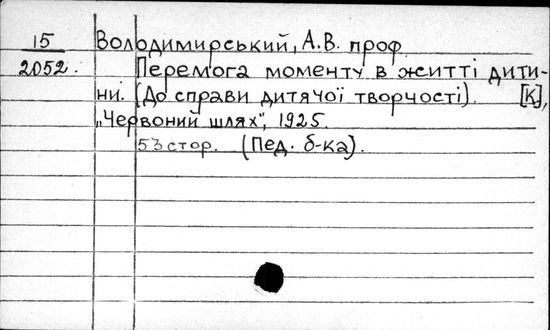 15 Володимирський, А.В. проф.
2052. Перемога моменту в житті дити-
ні. (До справи дитячої творчості). [К],
„Червоний шлях", 1925.
53 стор. (Пед. б-ка).